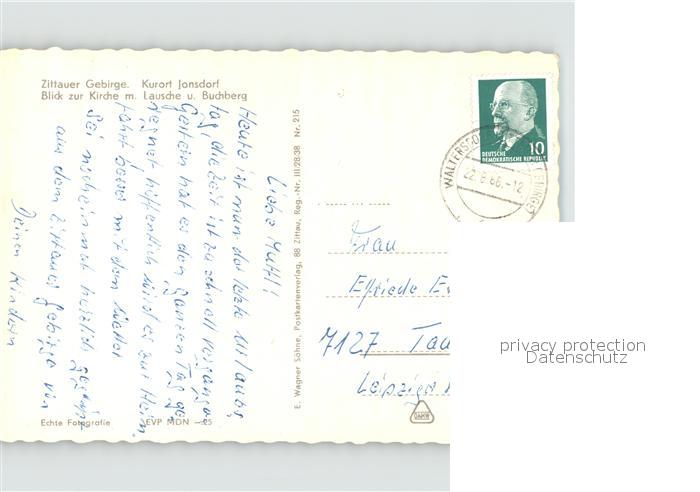 Zittauer Gebirge. Kurort Jonsdorf
Blick zur Kirche m. Lausche u. Buchberg
Liebe Mutti!
Heute ist nun der letzte Urlaubs
tag, die Zeit ist zu schnell vergangen
Gestern hat es den ganzen Tag ge
regnet hoffentlich wird es zur Heim
fahrt besser mit dem Wetter
Sei nochmal herzlich gegrüßt
aus dem Zittauer Gebirge von
Deinen Kindern
Echte Fotografie EVP MDN -.25
E. Wagner Söhne, Postkartenverlag, 88 Zittau, Reg.-Nr. III/28/38 Nr. 215
10
DEUTSCHE
DEMOKRATISCHE REPUBLIK
22.8.66.-12
Frau
Elfriede
7127
Leipziger
privacy protection
Datenschutz